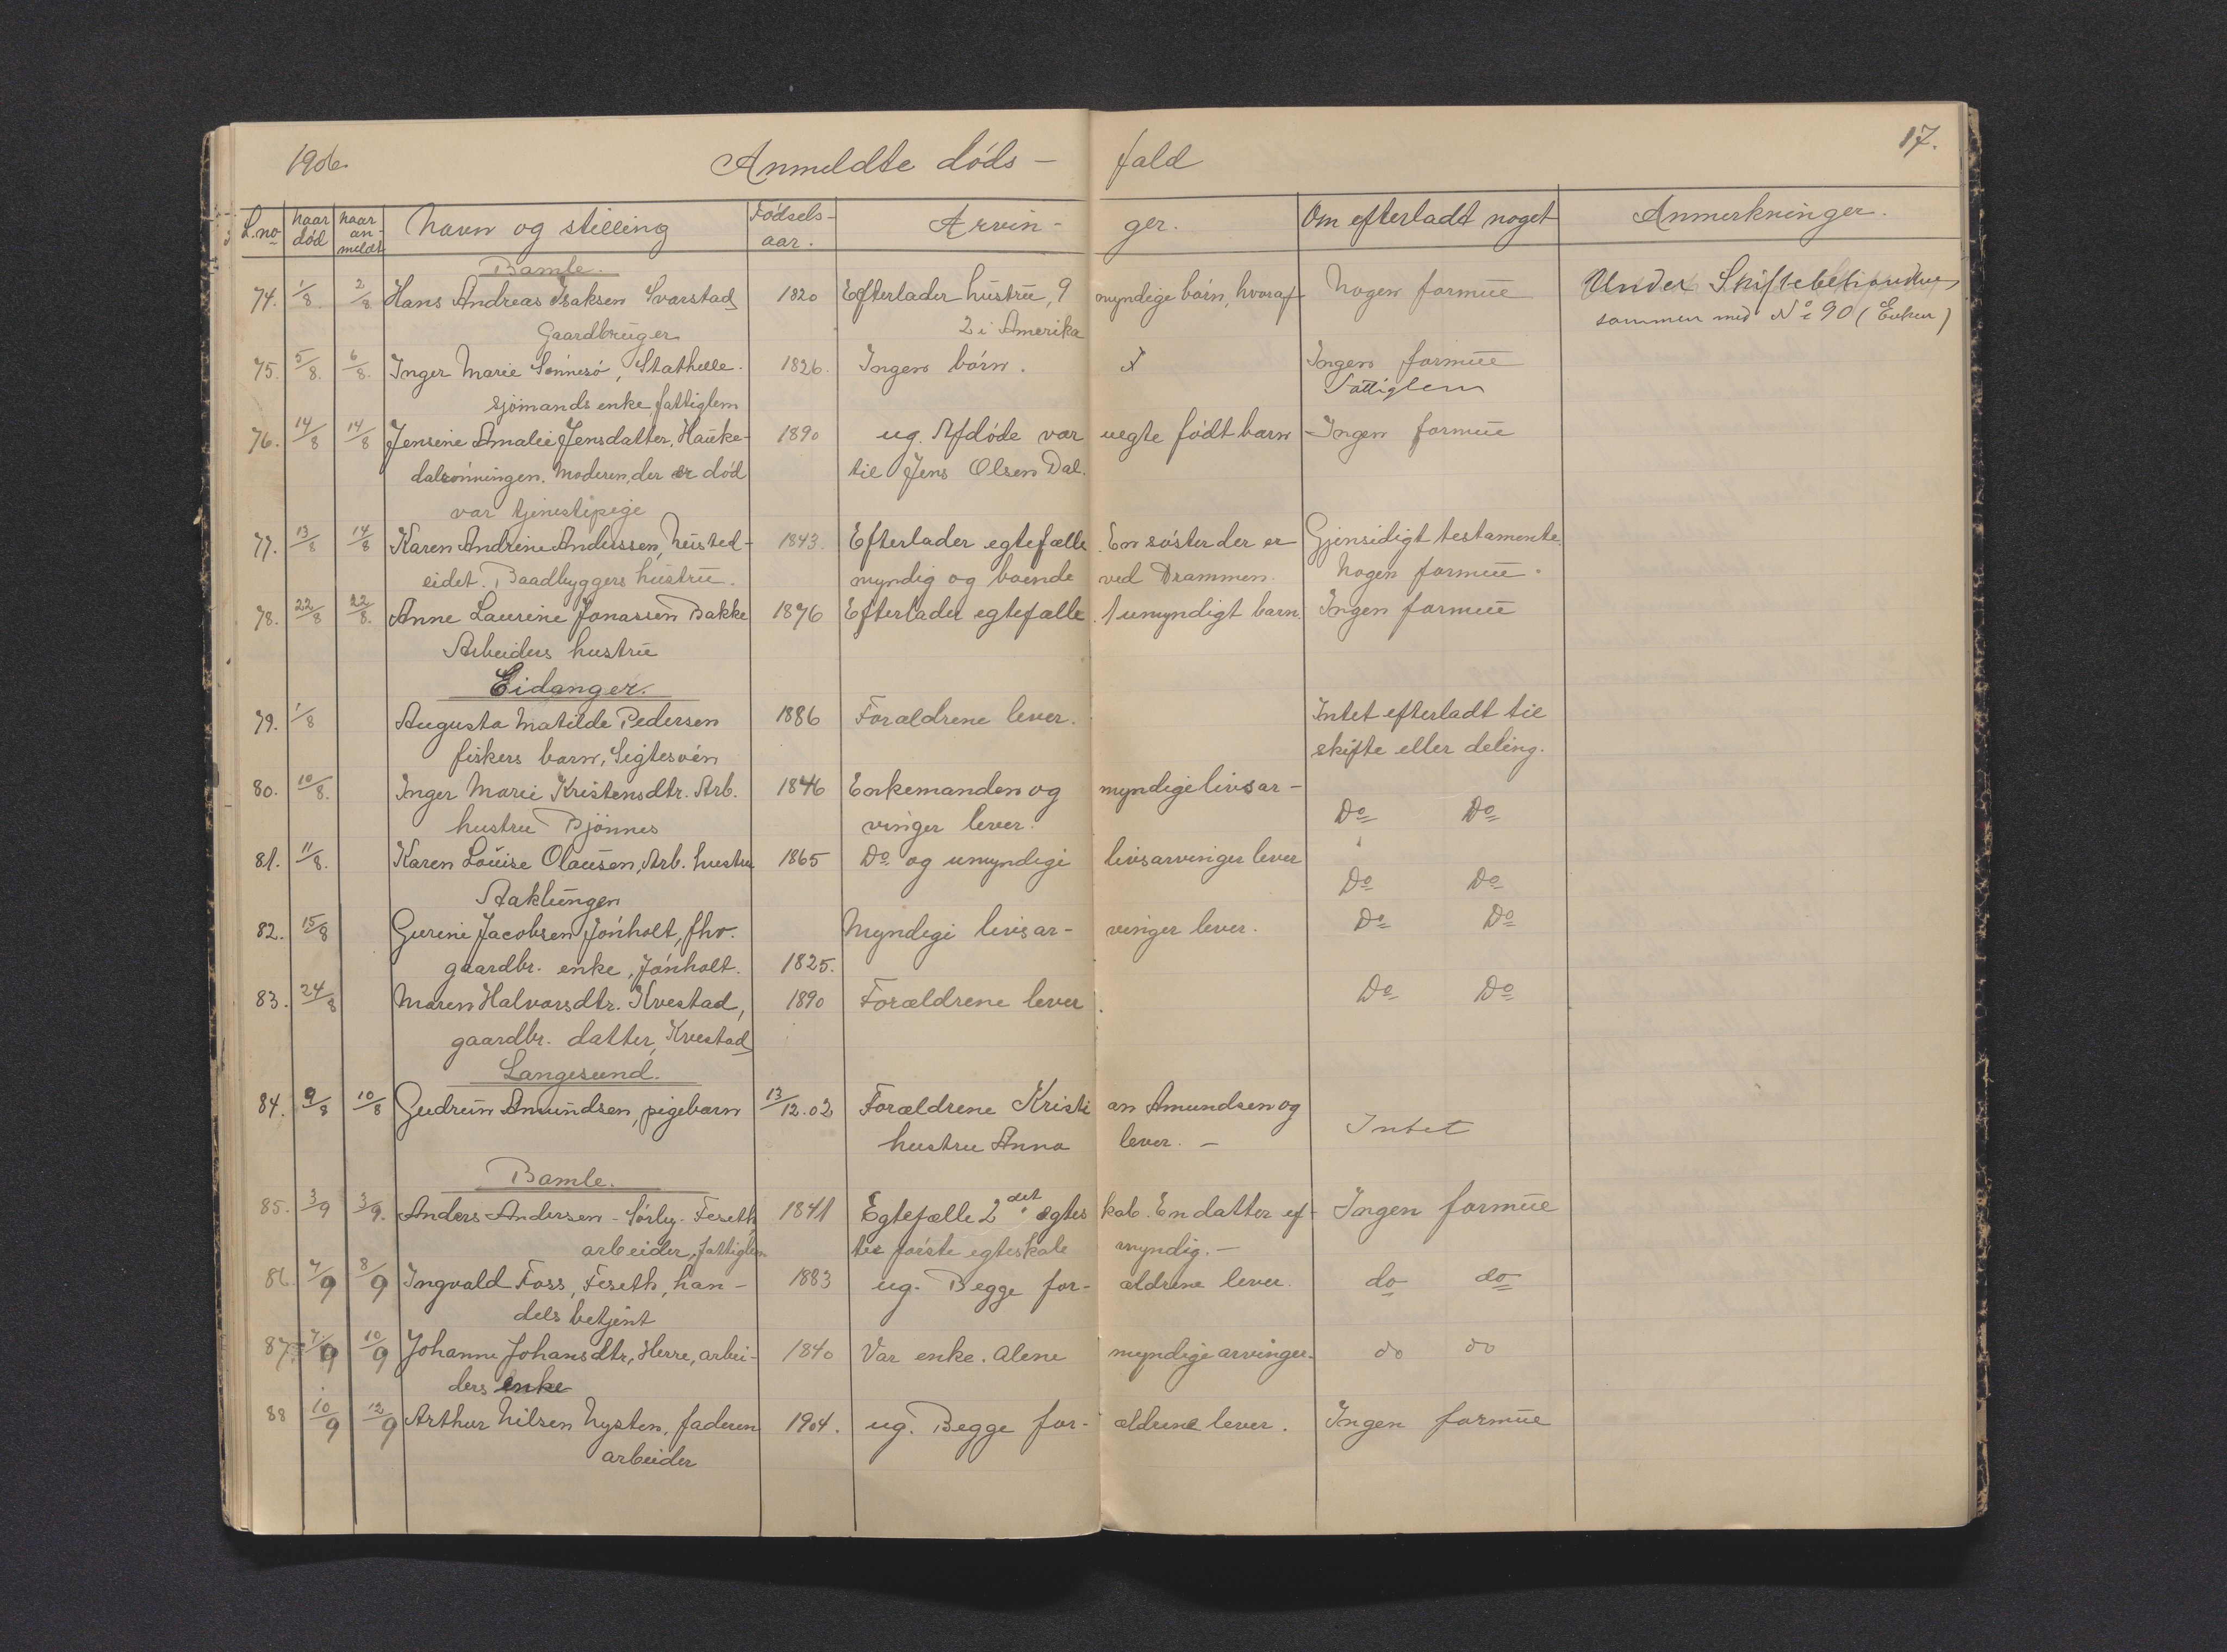 1906. Anmeldte döds- fald 17.
L.no naar död naar an-meldt Navn og stilling Födsels-aar. Arvin- ger. Om efterladt noget Anmerkninger.
Bamle.
74. 1/8 2/8 Hans Andreas Isaksen Svarstad 1820 Efterlader hustru, 9 myndige börn, hvoraf Nogen formue Under Skiftebehandling
Gaardbruger 2 i Amerika sammen med No 90 (Enken)
75. 5/8. 6/8. Inger Marie Sönnesö, Stathelle. 1826. Ingen börn. Ingen formue
sjömands enke, fattiglem Fattiglem
76. 14/8 14/8 Jensine Amalie Jensdatter, Hauke- 1890 ug. Afdöde var uegte födt barn Ingen formue
dalrönningen. Moderen, der er död til Jens Olsen Dal.
var tjenestepige
77. 13/8 14/8 Karen Andrine Anderssen, Neisted- 1843. Efterlader egtefælle. En söster der er Gjensidigt testamente.
eidet. Baadbyggers hustru. myndig og boende ved Drammen. Nogen formue.
78. 22/8 22/8. Anne Laurine Jonassen Bakke 1876 Efterlader egtefælle. 1 umyndigt barn. Ingen formue
Arbeiders hustru
Eidanger.
79. 1/8 Augusta Matilde Pedersen 1886 Forældrene lever. Intet efterladt til
fiskers barn, Sigtesöen skifte eller deling.
80. 10/8. Inger Marie Kristensdtr. Arb. 1846 Enkemanden og myndige livsar-
hustru Bjönnes vinger lever. Do Do
81. 11/8. Karen Louise Olausen, Arb. hustru 1865 Do og umyndige livsarvinger lever
Aaklungen Do Do
82. 15/8 Gurine Jacobsen Jönholt, fhv. Myndige livsar- vinger lever. Do Do
gaardbr. enke, Jönholt. 1825.
83. 24/8 Maren Halvorsdtr. Kvestad, 1890 Forældrene lever. Do Do
gaardbr. datter, Kvestad
Langesund.
84. 9/8 10/8 Gudrun Amundsen, pigebarn 13/12.02 Forældrene Kristi an Amundsen og
hustru Anna lever. – Intet
Bamle.
85. 3/9 3/9. Anders Andersen - Sörby - Feseth, 1841 Egtefælle 2det egtes kab. En datter ef- Ingen formue
arbeider, fattiglem ter förste egteskab myndig. –
86. 7/9 8/9 Ingvald Foss, Feseth, han- 1883 ug. Begge for- ældrene lever. do do
dels betjent
87. 7/9 10/9 Johanne Johansdtr, Herre, arbei- 1840 Var enke. Alene myndige arvinger. do do
ders enke
88 10/9 12/9 Arthur Nilsen Nysten, faderen 1904. ug. Begge for- ældrene lever. Ingen formue
arbeider